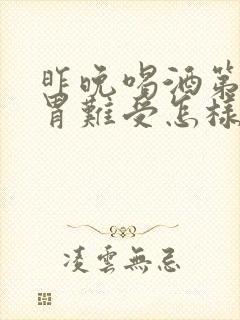 昨晚喝酒第
胃難受怎樣
凌雲無忌